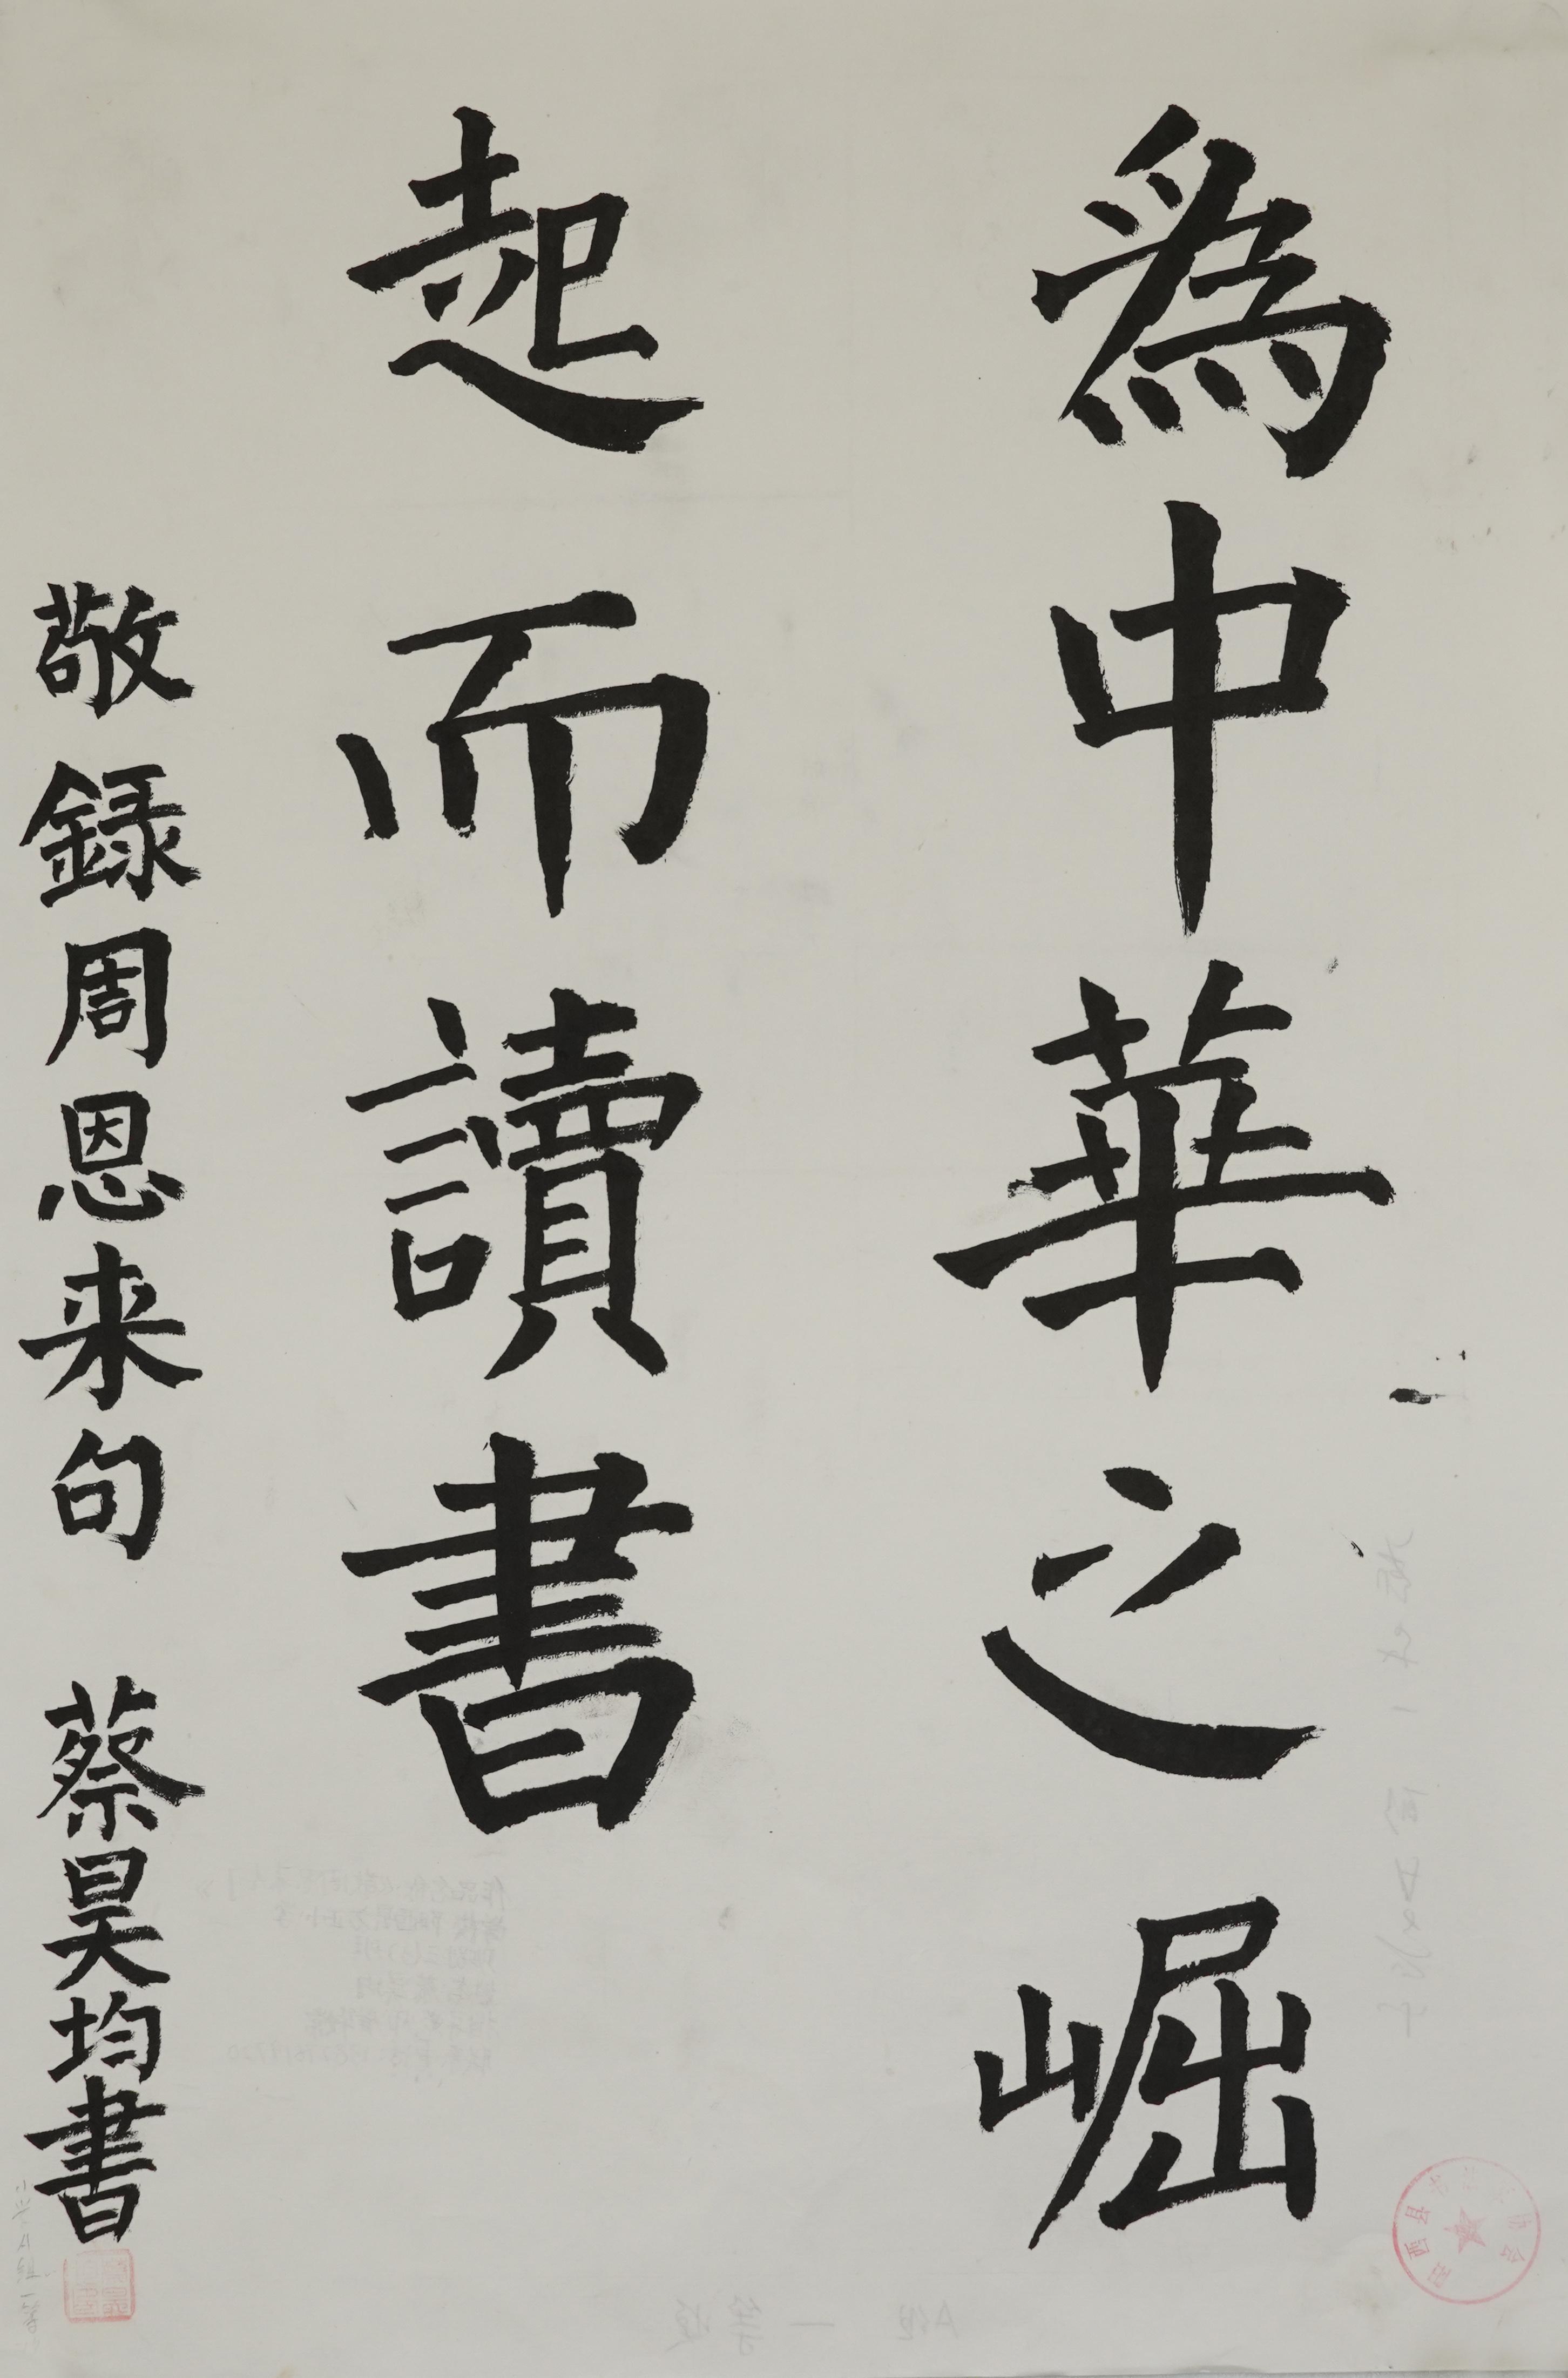 為中華之崛
起而讀書
敬録周恩来句 蔡昊均書